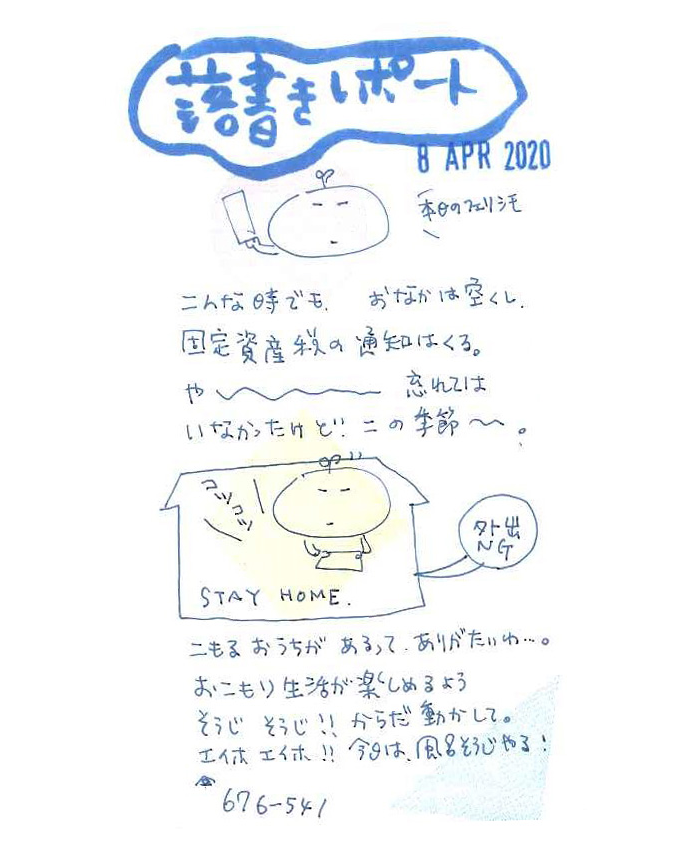 落書きレポート
8 APR 2020
本日のフェリシモ
こんな時でも、おなかは空くし、
固定資産税の通知はくる。
や〜〜〜〜 忘れては
いなかったけど!! この季節〜。
コツコツ
外出
NG
STAY HOME.
こもるおうちが あるって、ありがたいわ…。
おこもり生活が楽しめるよう
そうじ そうじ!! からだ動かして。
エイホ エイホ!! 今日は、風呂そうじやる!
676-541